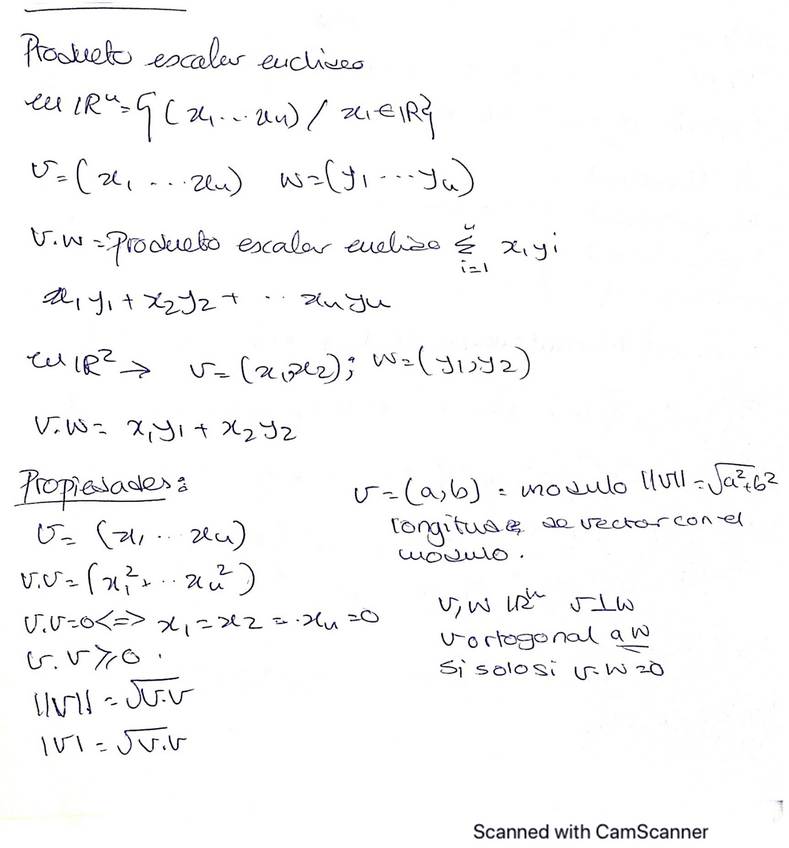 Producto escalar euclideo
en IRⁿ = { (x₁ ... xₙ) / xᵢ ∈ IR}
v = (x₁ ... xₙ) w = (y₁ ... yₙ)
v.w = Producto escalar euclideo Σⁿᵢ₌₁ xᵢyᵢ
x₁y₁ + x₂y₂ + ·· xₙyₙ
en IR² → v = (x₁, x₂); w = (y₁, y₂)
v.w = x₁y₁ + x₂y₂
Propiedades:
v = (x₁ ·· xₙ)
v.v = (x₁² + ·· xₙ²)
v.v = 0 <=> x₁ = x₂ = ·xₙ = 0
v.v ⩾ 0.
||v|| = √v.v
|v| = √v.v
v = (a,b) = modulo ||v|| = √a²+b²
longitud de vector con el
modulo.
v, w IRⁿ v⊥w
v ortogonal a w
Si solo si v.w = 0
Scanned with CamScanner